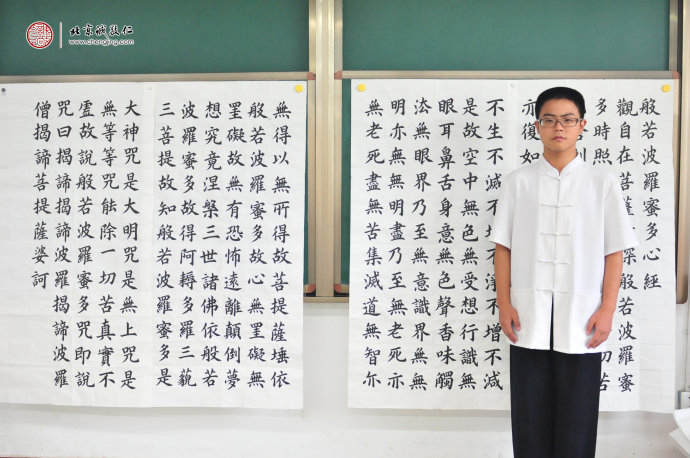 北京城敖仁
www.chengjing.com
般若波羅蜜多心經
觀自在菩薩深般若波羅蜜
多時照切苦
亦復如
不生不滅不不淨不增不減
是故空中無色無受想行識無
眼耳鼻舌身意無色聲香味觸
法無眼界乃至無意識界無無
明亦無無明盡乃至無老死亦
無老死盡無苦集滅道無智亦
無得以無所得故菩提薩埵依
般若波羅蜜多故心無罣礙無
罣礙故無有恐怖遠離顛倒夢
想究竟涅槃三世諸佛依般若
波羅蜜多故得阿耨多羅三藐
三菩提故知般若波羅蜜多是
大神咒是大明咒是無上咒是
無等等咒能除一切苦真實不
虛故說般若波羅蜜多咒即說
咒曰揭諦揭諦波羅揭諦波羅
僧揭諦菩提薩婆訶